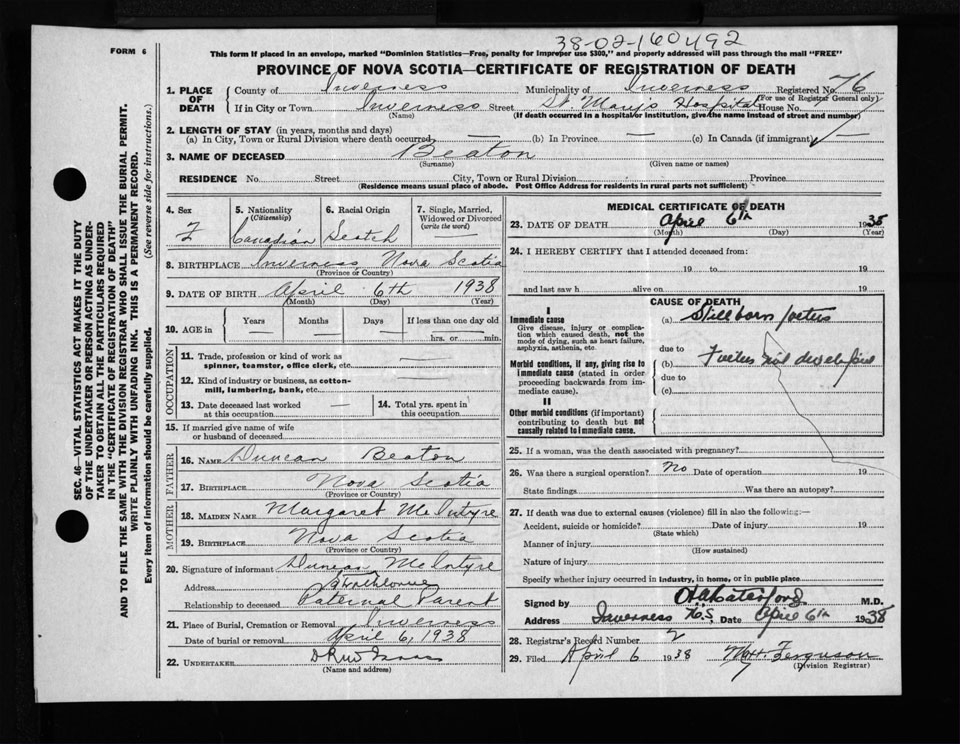 38-02-160492
FORM 6
This form if placed in an envelope, marked "Dominion Statistics—Free, penalty for improper use $300," and properly addressed will pass through the mail "FREE"
PROVINCE OF NOVA SCOTIA—CERTIFICATE OF REGISTRATION OF DEATH
SEC. 46—VITAL STATISTICS ACT MAKES IT THE DUTY
OF THE UNDERTAKER OR PERSON ACTING AS UNDER-
TAKER TO OBTAIN ALL THE PARTICULARS REQUIRED
IN THE "CERTIFICATE OF REGISTRATION OF DEATH"
AND TO FILE THE SAME WITH THE DIVISION REGISTRAR WHO SHALL ISSUE THE BURIAL PERMIT.
WRITE PLAINLY WITH UNFADING INK. THIS IS A PERMANENT RECORD.
Every item of information should be carefully supplied. (See reverse side for instructions.)
1. PLACE OF DEATH County of Inverness Municipality of Inverness Registered No. 76
(For use of Registrar General only)
If in City or Town Inverness Street St. Mary's Hospital House No.
(Name) (If death occurred in a hospital or institution, give the name instead of street and number)
2. LENGTH OF STAY (in years, months and days)
(a) In City, Town or Rural Division where death occurred — (b) In Province — (c) In Canada (if immigrant) —
3. NAME OF DECEASED Beaton
(Surname) (Given name or names)
RESIDENCE No. Street City, Town or Rural Division Province
(Residence means usual place of abode. Post Office Address for residents in rural parts not sufficient)
4. Sex
F
5. Nationality
(Citizenship)
Canadian
6. Racial Origin
Scotch
7. Single, Married,
Widowed or Divorced
(write the word)
—
8. BIRTHPLACE Inverness Nova Scotia
(Province or Country)
9. DATE OF BIRTH April 6th 1938
(Month) (Day) (Year)
10. AGE in Years Months Days If less than one day old
— — — hrs. or min.
OCCUPATION
11. Trade, profession or kind of work as
spinner, teamster, office clerk, etc. —
12. Kind of industry or business, as cotton-
mill, lumbering, bank, etc. —
13. Date deceased last worked
at this occupation —
14. Total yrs. spent in
this occupation
15. If married give name of wife
or husband of deceased
FATHER
16. NAME Duncan Beaton
17. BIRTHPLACE Nova Scotia
(Province or Country)
MOTHER
18. MAIDEN NAME Margaret McIntyre
19. BIRTHPLACE Nova Scotia
(Province or Country)
20. Signature of informant Duncan McIntyre
Address
Relationship to deceased Paternal Parent
21. Place of Burial, Cremation or Removal Inverness
Date of burial or removal April 6, 1938
22. UNDERTAKER
(Name and address)
MEDICAL CERTIFICATE OF DEATH
23. DATE OF DEATH April 6th 1938
(Month) (Day) (Year)
24. I HEREBY CERTIFY that I attended deceased from:
19 to 19
and last saw h alive on 19
CAUSE OF DEATH
I
Immediate cause
Give disease, injury or complica-
tion which caused death, not the
mode of dying, such as heart failure,
asphyxia, asthenia, etc.
Morbid conditions, if any, giving rise to
immediate cause (stated in order
proceeding backwards from im-
mediate cause).
II
Other morbid conditions (if important)
contributing to death but not
causally related to immediate cause.
(a) Stillborn foetus
due to
(b) Foetus not developed
due to
(c)
25. If a woman, was the death associated with pregnancy?
26. Was there a surgical operation? No Date of operation 19
State findings Was there an autopsy?
27. If death was due to external causes (violence) fill in also the following:—
Accident, suicide or homicide? Date of injury 19
(State which)
Manner of injury
(How sustained)
Nature of injury
Specify whether injury occurred in industry, in home, or in public place
Signed by M.D.
Address Inverness N.S. Date April 6th 1938
28. Registrar's Record Number 2
29. Filed April 6 1938 Ferguson
(Division Registrar)